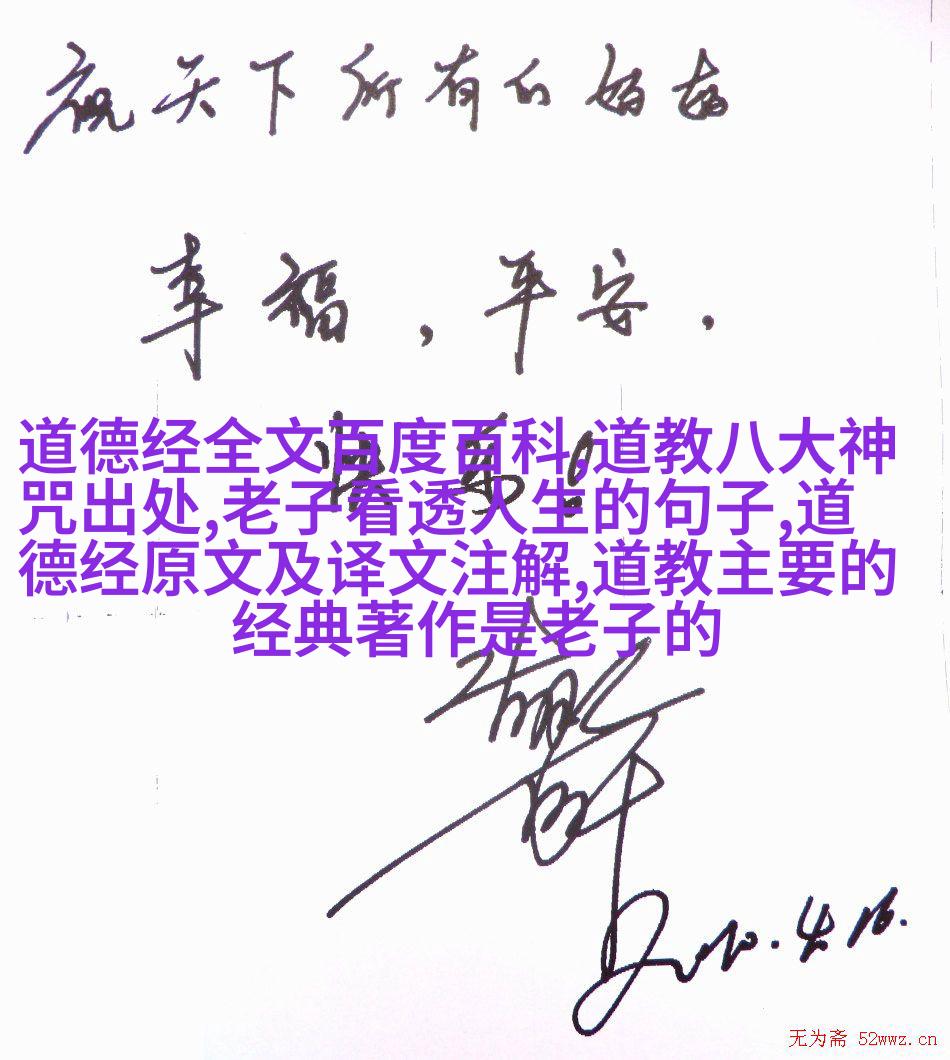 祝天下所有的妈妈
幸福，平安，
快乐！
道德经全文百度百科,道教八大神
咒出处,老子看透人生的句子,道
德经原文及译文注解,道教主要的
经典著作是老子的
2010.4.16.
无为斋 52wwz.cn